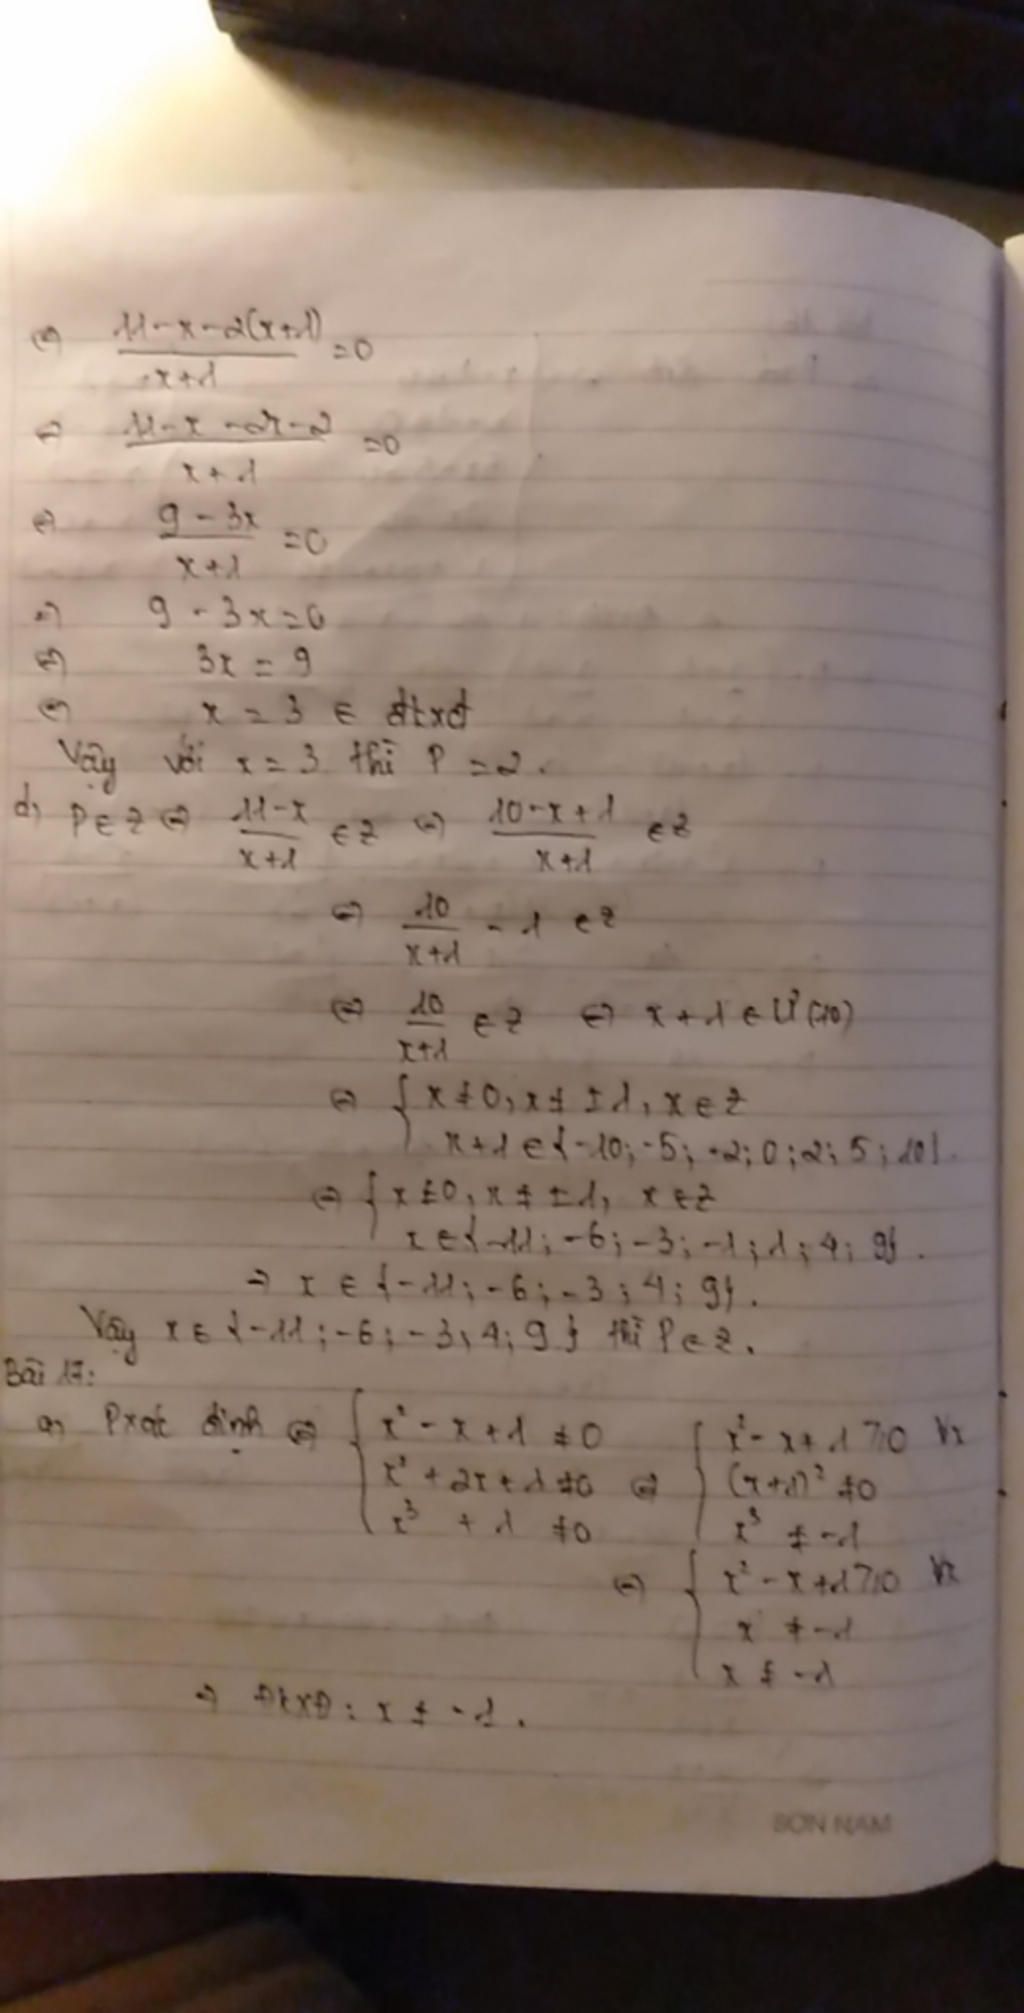 ⇔ (11-x-2(x+1))/(x+1) = 0
⇔ (11-x-2x-2)/(x+1) = 0
⇔ (9-3x)/(x+1) = 0
⇔ 9-3x=0
⇔ 3x = 9
⇔ x = 3 ∈ đkxđ
Vậy với x = 3 thì P = 2.
d, P∈Z ⇔ (11-x)/(x+1) ∈ Z ⇔ (10-x+1)/(x+1) ∈ Z
⇔ 10/(x+1) - 1 ∈ Z
⇔ 10/(x+1) ∈ Z ⇔ x+1 ∈ Ư(10)
⇔ { x≠0, x≠ ±1, x∈Z
x+1 ∈ {-10; -5; -2; 0; 2; 5; 10}.
⇔ { x≠0, x≠ ±1, x∈Z
x∈{-11; -6; -3; -1; 1; 4; 9}.
⇒ x ∈ {-11; -6; -3; 4; 9}.
Vậy x∈ {-11; -6; -3; 4; 9} thì P∈Z.
Bài 17:
a, P xác định ⇔ { x²-x+1 ≠0 { x²-x+1 >0 ∀x
x²+2x+1≠0 ⇔ (x+1)² ≠0
x³ + 1 ≠0 x³ ≠ -1
⇔ { x²-x+1>0 ∀x
x ≠ -1
x ≠ -1
⇒ ĐKXĐ: x ≠ -1.
SON NAM